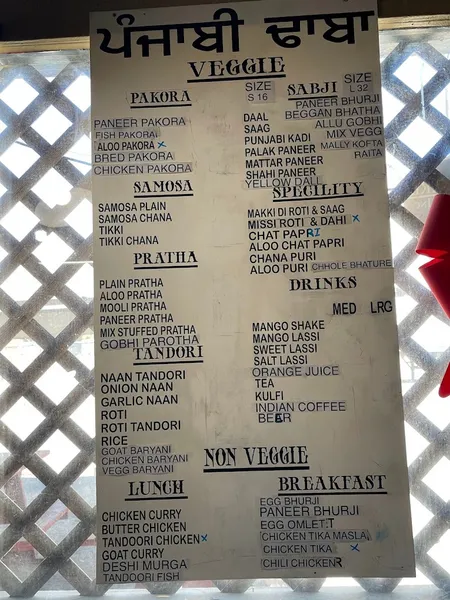 ਪੰਜਾਬੀ ਢਾਬਾ
VEGGIE
PAKORA
PANEER PAKORA
FISH PAKORA
ALOO PAKORA x
BRED PAKORA
CHICKEN PAKORA
SAMOSA
SAMOSA PLAIN
SAMOSA CHANA
TIKKI
TIKKI CHANA
PRATHA
PLAIN PRATHA
ALOO PRATHA
MOOLI PRATHA
PANEER PRATHA
MIX STUFFED PRATHA
GOBHI PAROTHA
TANDORI
NAAN TANDORI
ONION NAAN
GARLIC NAAN
ROTI
ROTI TANDORI
RICE
GOAT BARYANI
CHICKEN BARYANI
VEGG BARYANI
SIZE S 16
SABJI
SIZE L 32
DAAL
SAAG
PUNJABI KADI
PALAK PANEER
MATTAR PANEER
SHAHI PANEER
YELLOW DALL
PANEER BHURJI
BEGGAN BHATHA
ALLU GOBHI
MIX VEGG
MALLY KOFTA
RAITA
SPECILITY
MAKKI DI ROTI & SAAG
MISSI ROTI & DAHI x
CHAT PAPRI
ALOO CHAT PAPRI
CHANA PURI
ALOO PURI CHHOLE BHATURE
DRINKS
MED LRG
MANGO SHAKE
MANGO LASSI
SWEET LASSI
SALT LASSI
ORANGE JUICE
TEA
KULFI
INDIAN COFFEE
BEER
NON VEGGIE
LUNCH
CHICKEN CURRY
BUTTER CHICKEN
TANDOORI CHICKEN x
GOAT CURRY
DESHI MURGA
TANDOORI FISH
BREAKFAST
EGG BHURJI
PANEER BHURJI
EGG OMLET:T
CHICKEN TIKA MASLA
CHICKEN TIKA x
CHILI CHICKENR